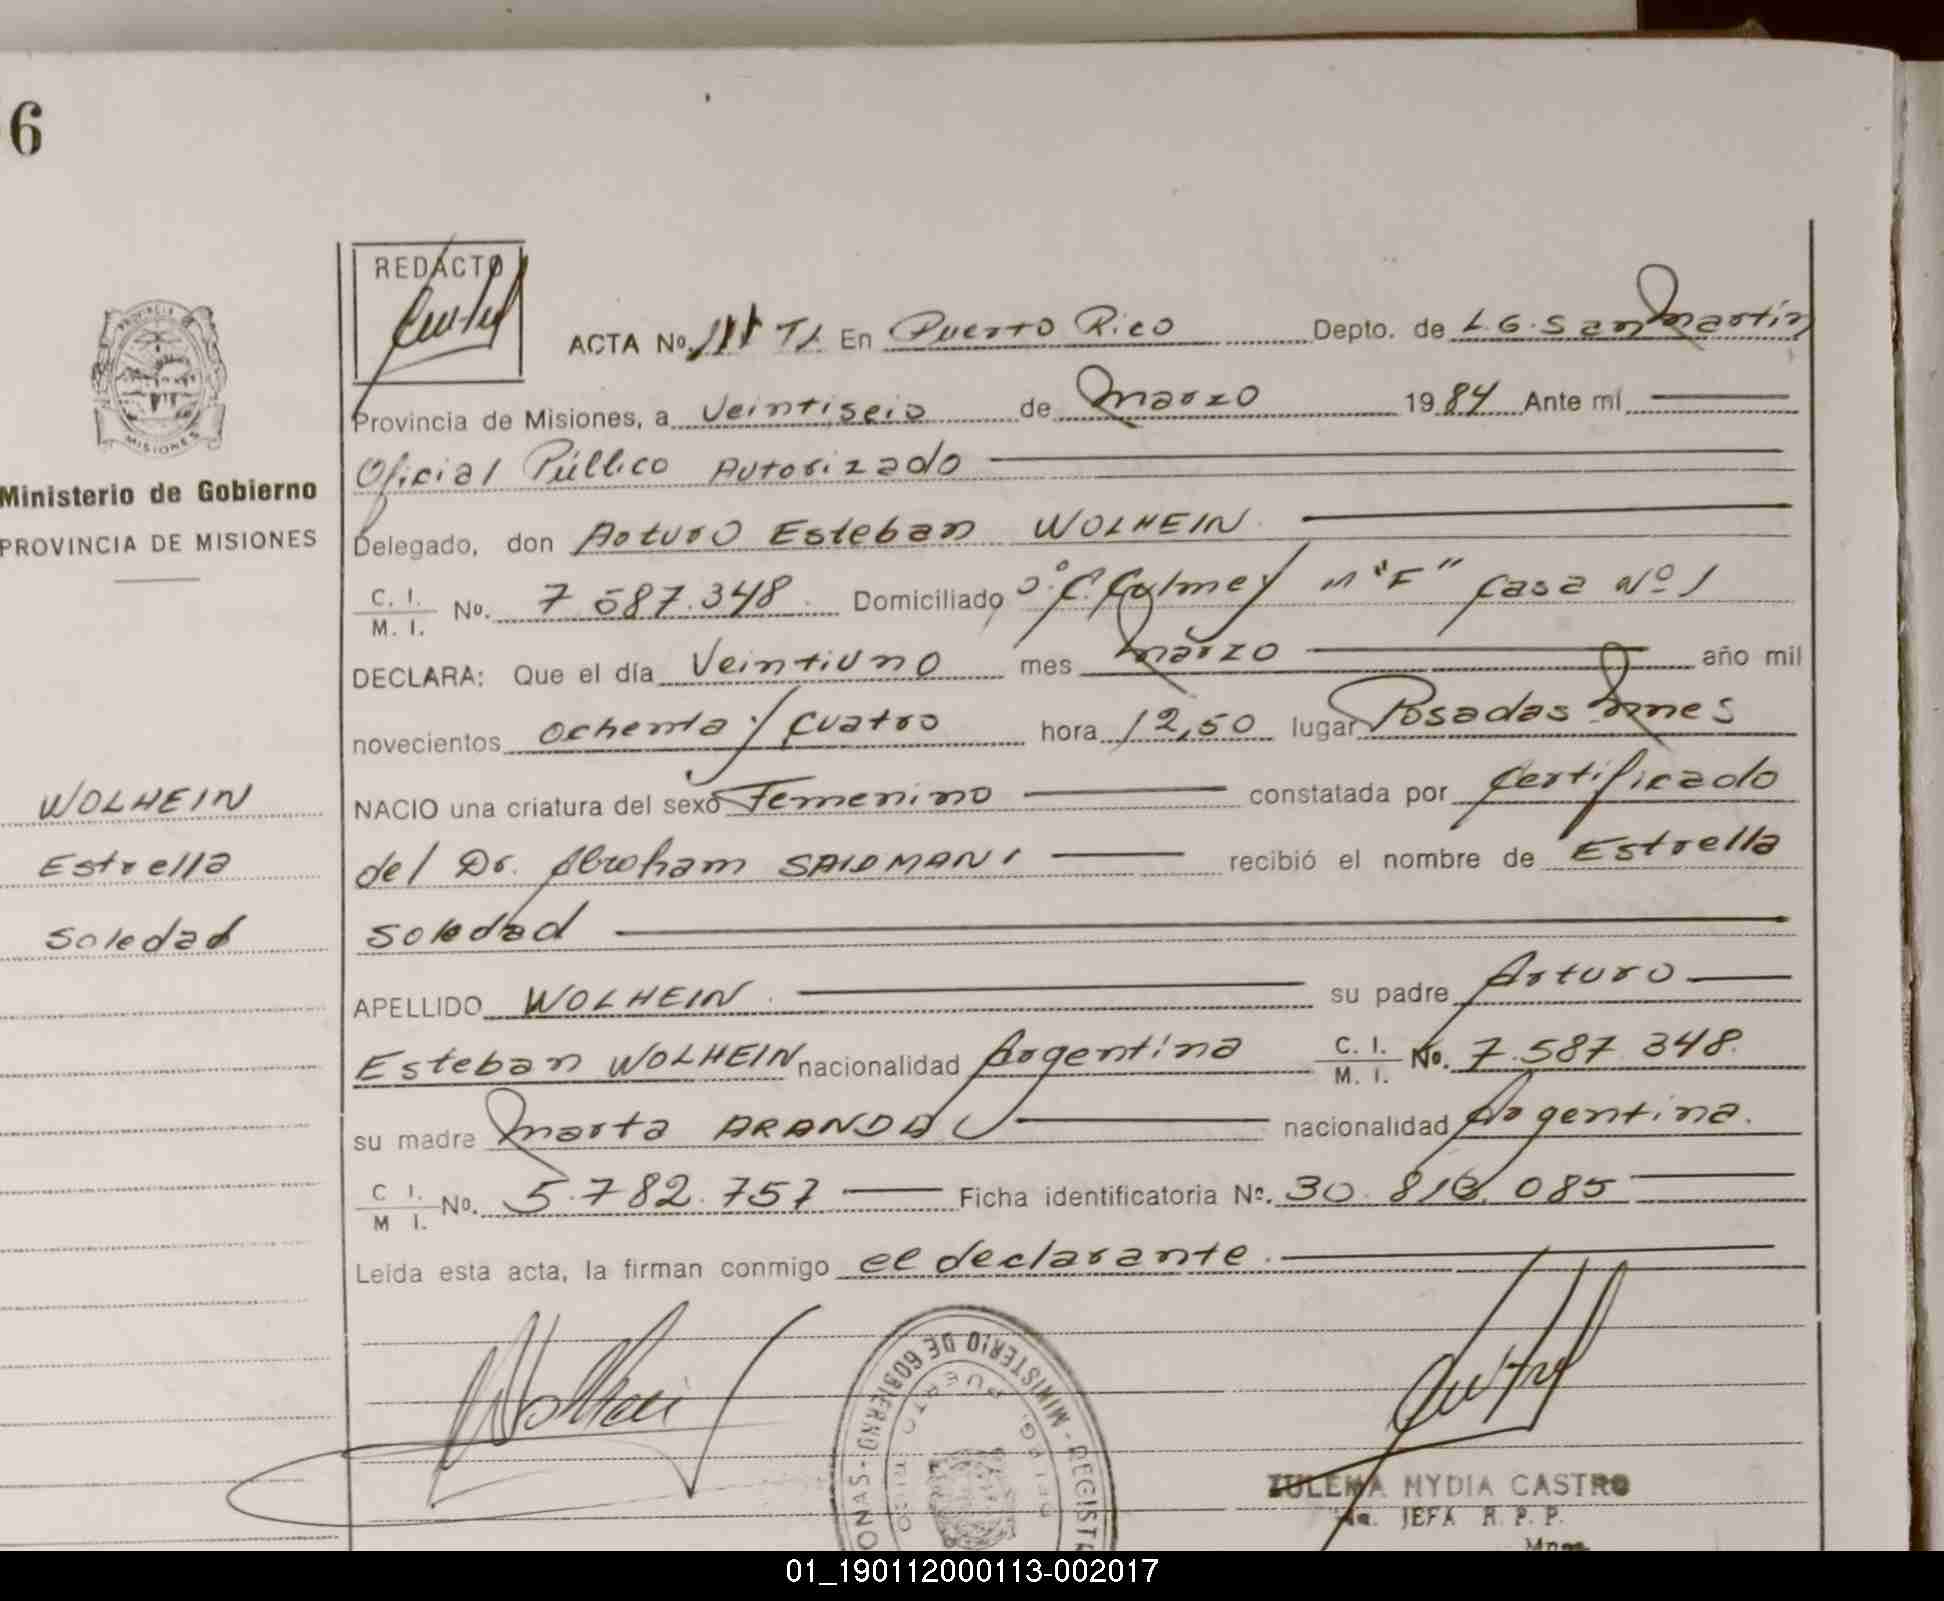 6
REDACTO
ACTA No. 111 T1. En Puerto Rico Depto. de L.G. San Martin
Provincia de Misiones, a Veintiseis de Marzo 1984 Ante mi
Oficial Público Autorizado
Delegado, don Arturo Esteban WOLHEIN.
C. I. / M. I. No. 7.587.348. Domiciliado M "F" Casa Nº 1
DECLARA: Que el día Veintiuno mes Marzo año mil
novecientos ochenta y cuatro hora 12,50 lugar Posadas Mnes
NACIO una criatura del sexo Femenino constatada por Certificado
del Dr. Abraham recibió el nombre de Estrella
Soledad
APELLIDO WOLHEIN. su padre Arturo
Esteban WOLHEIN nacionalidad Argentina C. I. / M. I. No. 7.587.348.
su madre Marta ARANDA nacionalidad Argentina.
C I. / M I. No. 5.782.757 Ficha identificatoria Nº. 30. 085
Leída esta acta, la firman conmigo el declarante.
PROVINCIA
MISIONES
Ministerio de Gobierno
PROVINCIA DE MISIONES
WOLHEIN
Estrella
Soledad
MINISTERIO DE GOBIERNO
PUERTO RICO
ZULEMA MYDIA CASTRO
JEFA R. P. P.
Mnes
01_190112000113-002017